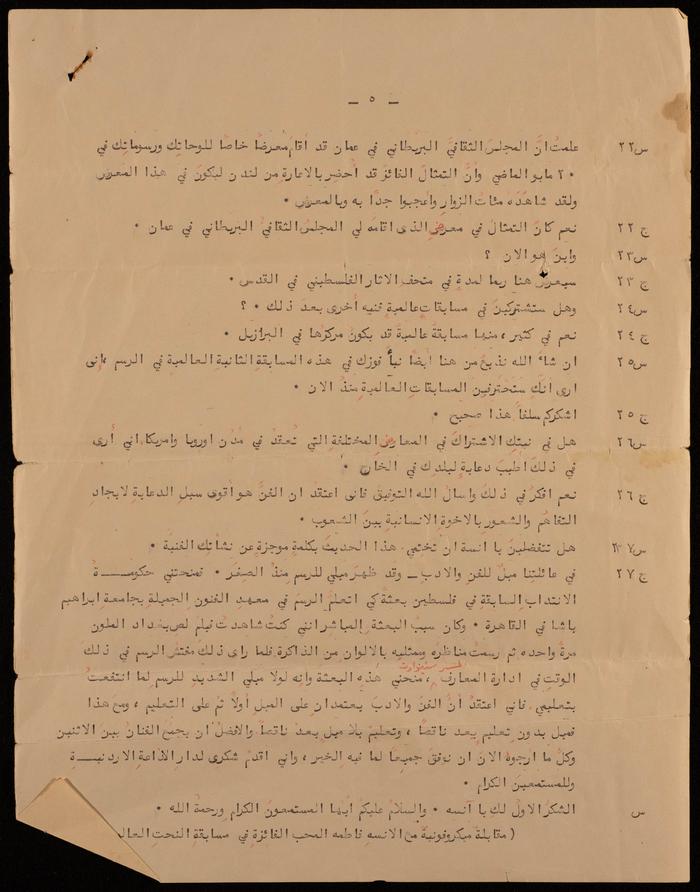 — ٥ —
س٢٢ علمت انّ المجلس الثقافيّ البريطاني في عمان قد أقام معرضًا خاصًا للوحاتك ورسوماتك في
٢٠ مايو الماضي وأنّ التمثال الفائز قد أُحضر بالاعارة من لندن ليكون في هذا المعرض
ولقد شاهَدَه مئات الزوار وأعجبوا جدًا به وبالمعرض .
ج ٢٢ نعم كان التمثال في معرضي الذى اقامه لي المجلس الثقافيّ البريطاني في عمان .
س٢٣ واين هو الان ؟
ج ٢٣ سيعرض هنا ربما لمدةٍ في متحف الاثار الفلسطيني في القدس .
س٢٤ وهل ستشتركين في مسابقاتٍ عالميةٍ فنيه أُخرى بعد ذلك . ؟
ج ٢٤ نعم في كثير ، منها مسابقةٌ عالمية قد يكون مركزها في البرازيل .
س٢٥ ان شاء الله نذيع من هنا أيضًا نبأ فوزك في هذه المسابقة الثانية العالمية في الرسم ، انى
ارى انك ستحترفين المسابقات العالمية منذ الان .
ج ٢٥ اشكركم سلفًا هذا صحيح .
س٢٦ هل في نيتك الاشتراك في المعارض المختلفة التي تُعقد في مُدُن اوروبا وامريكا، اني أرى
في ذلك أطيب دعاية لبلدك في الخارج .
ج ٢٦ نعم افكر في ذلك واسال الله التوفيق فانى اعتقد ان الفنّ هو أقوى سبل الدعاية لايجاد
التفاهُم والشعور بالاخوة الانسانية بين الشعوب .
س٢٧ هل تتفضلين يا انسة ان تختمي هذا الحديث بكلمةٍ موجزة عن نشأتك الفنية .
ج ٢٧ في عائلتنا ميلٌ للفن والادب ــ وقد ظهر ميلي للرسم منذ الصغر . فمنحتني حكومـــة
الانتداب السابقة في فلسطين بعثة كي اتعلم الرسم في معهد الفنون الجميلة بجامعة ابراهيم
باشا في القاهرة . وكان سبب البعثة المباشر انني كنت شاهدت فيلم لص بغداد الملون
مرةً واحده ثم رسمتُ مناظره وممثليه بالالوان من الذاكرة فلما راى ذلك مفتش الرسم في ذلك
الوقت في ادارة المعارف ، منحني هذه البعثة وانه لولا ميلي الشديد للرسم لما انتفعتُ
بتعليمي فاني اعتقد أنّ الفن والادب يعتمدان على الميل أولاً ثم على التعليم ، ومع هذا
فميل بدون تعليم يعد ناقصًا ، وتعليم بلا ميل يعد ناقصًا والافضل ان يجمع الفنان بين الاثنين
وكلّ ما ارجوه الان ان نوفق جميعًا لما فيه الخير ، واني اقدم شكرى لدار الاذاعة الاردنيـــة
وللمستمعين الكرام .
س الشكر الاول لك يا آنسه . والسلام عليكم أيها المستمعون الكرام ورحمة الله .
( مقابلة ميكروفونية مع الانسه فاطمه المحب الفائزة في مسابقة النحت